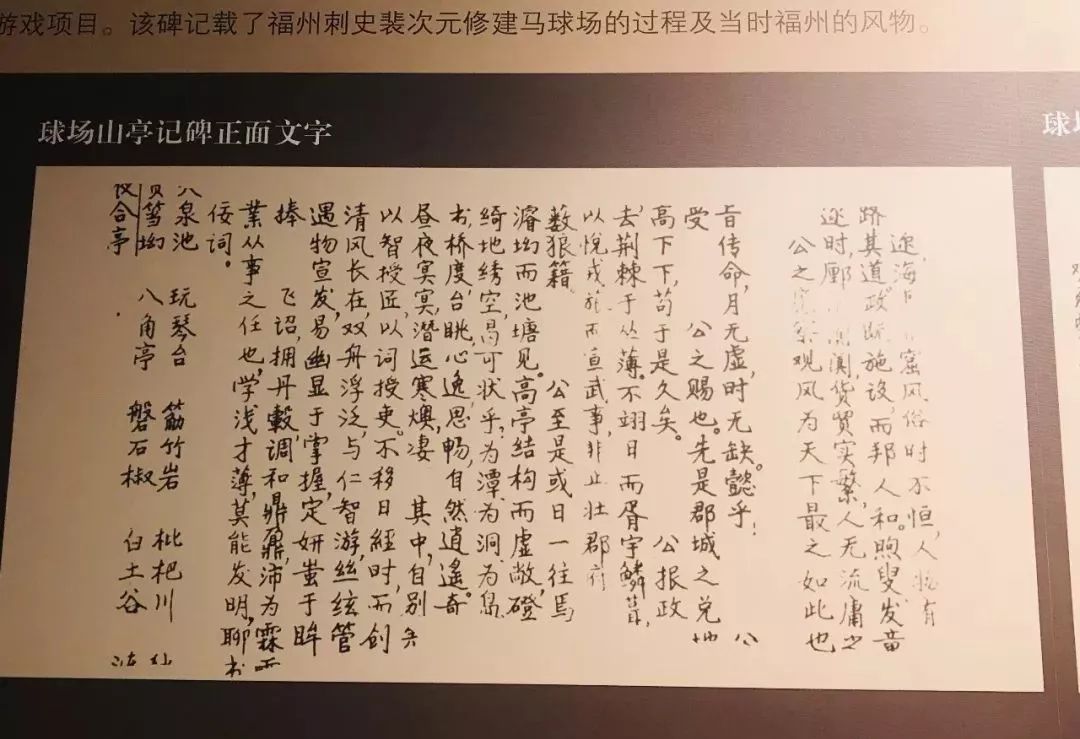 游戏项目。该碑记载了福州刺史裴次元修建马球场的过程及当时福州的风物。
球场山亭记碑正面文字
球
迩海 窟风俗时不恒,人 有
跻其道政 施设,而邦人和。煦叟发音
迩时,廓 阛,货贸实繁,人无流庸之
公之 察观风为天下最之如此也
旨传命,月无虚,时无缺。懿乎! 公
受 公之赐也。先是郡城之兑地
高下下,苟于是久矣。 公报政
去荆棘于丛薄。不翊日而胥宇鳞萁,
以悦戎旅而宣武事,非止壮郡府
薮狼籍。 公至是或日一往焉
濬坳而池塘见。高亭结构而虚敞,磴
绮地绣空,曷可状乎,为潭为洞为岛
木,桥度台眺,心逸思畅,自然逍遥。奇
昼夜冥冥,潜运寒燠,凄 其中,自别
以智授匠,以词授吏。不移日经时,而创
清风长在,双舟浮泛,与仁智游,丝纮管
遇物宣发,易幽显于掌握,定妍蚩于眸
捧 飞诏,拥丹毂,调和鼎鼐,沛为霖雨
業从事之任也,学浅才薄,莫能发明,聊书
佞词。
泉池 玩琴台 筋竹岩 枇杷川
筜坳 八角亭 磐石椒 白土谷
合亭